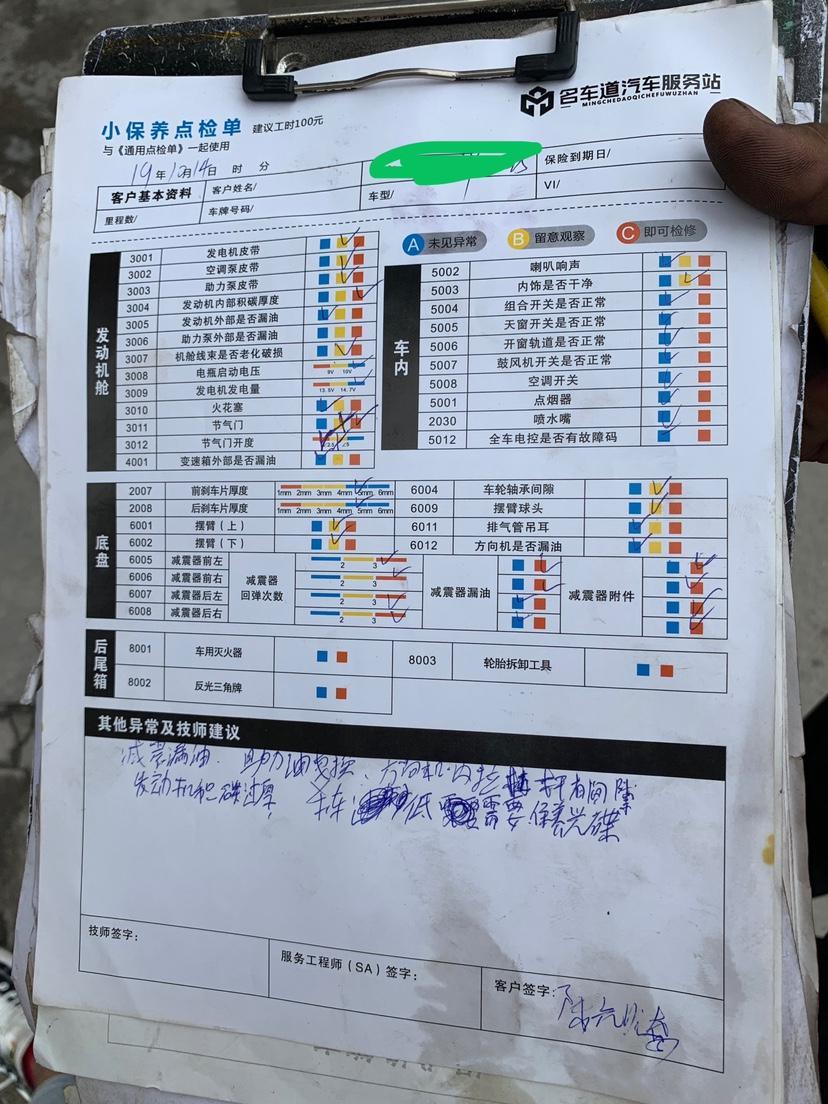 名车道汽车服务站
MINGCHEDAOQICHEFUWUZHAN
小保养点检单 建议工时100元
与《通用点检单》一起使用
19年10月14日 时 分
客户基本资料 客户姓名/ 保险到期日/
里程数/ 车牌号码/ 车型/ VI/
A 未见异常 B 留意观察 C 即可检修
发动机舱
3001 发电机皮带
3002 空调泵皮带
3003 助力泵皮带
3004 发动机内部积碳厚度
3005 发动机外部是否漏油
3006 助力泵外部是否漏油
3007 机舱线束是否老化破损
3008 电瓶启动电压 9V 10V
3009 发电机发电量 13.5V 14.7V
3010 火花塞
3011 节气门
3012 节气门开度
4001 变速箱外部是否漏油
车内
5002 喇叭响声
5003 内饰是否干净
5004 组合开关是否正常
5005 天窗开关是否正常
5006 开窗轨道是否正常
5007 鼓风机开关是否正常
5008 空调开关
5001 点烟器
2030 喷水嘴
5012 全车电控是否有故障码
底盘
2007 前刹车片厚度 1mm 2mm 3mm 4mm 5mm 6mm 6004 车轮轴承间隙
2008 后刹车片厚度 1mm 2mm 3mm 4mm 5mm 6mm 6009 摆臂球头
6001 摆臂（上） 6011 排气管吊耳
6002 摆臂（下） 6012 方向机是否漏油
6005 减震器前左 减震器回弹次数 2 3 减震器漏油 减震器附件
6006 减震器前右 2 3
6007 减震器后左 2 3
6008 减震器后右 2 3
后尾箱
8001 车用灭火器 8003 轮胎拆卸工具
8002 反光三角牌
其他异常及技师建议
减震漏油. 助力油更换、方向机内拉杆有间隙
发动机积碳过厚， 低 需要保养
技师签字： 服务工程师（SA）签字： 客户签字：